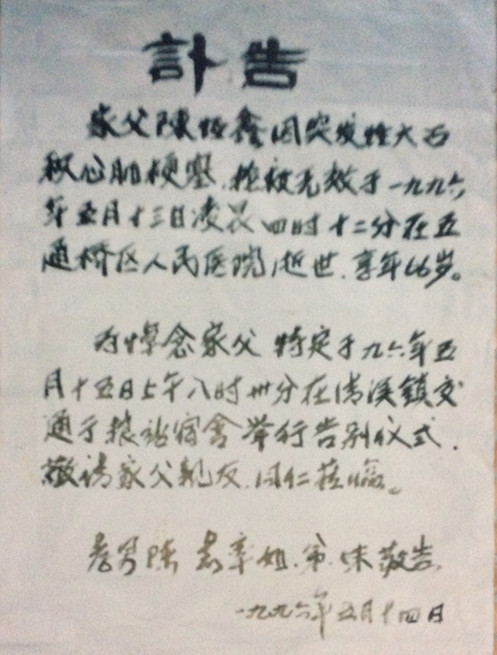 訃告
家父陳 鑫因突发性大面
积心肌梗塞，抢救无效于一九九六
年五月十三日凌晨四时十二分在五
通桥区人民医院逝世，享年66岁。
为悼念家父 特定于九六年五
月十五日上午八时卅分在清溪鎮交
通于粮站宿舍举行告别仪式，
敬请家父親友、同仁莅临。
孝男陳 率姐、弟、妹敬告
一九九六年五月十四日